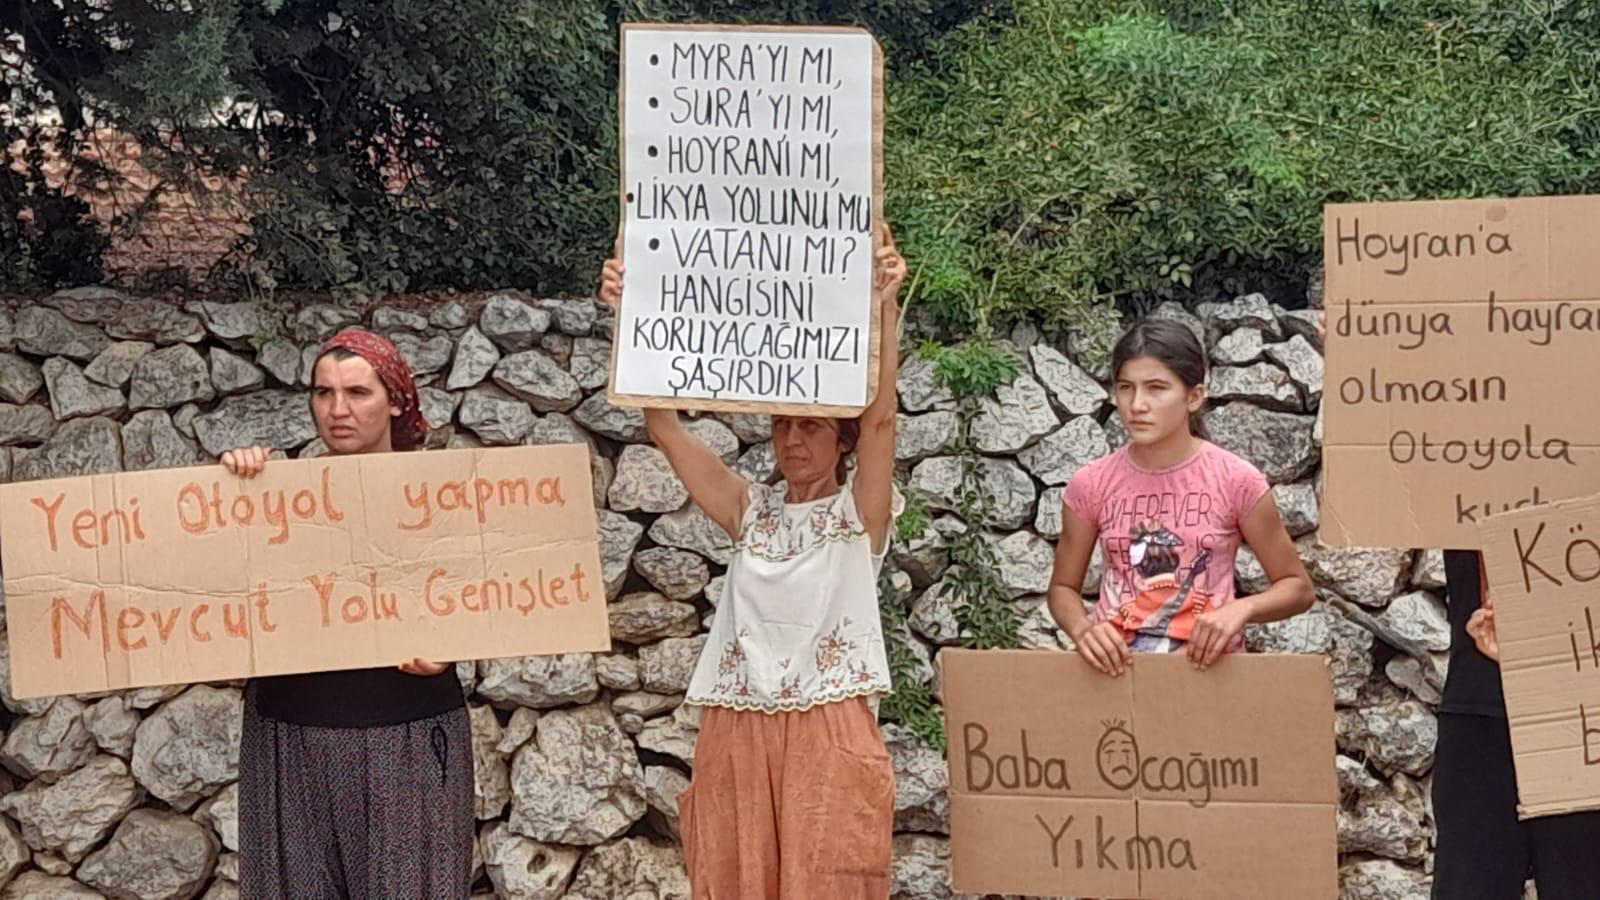 Yeni Otoyol yapma
Mevcut Yolu Genişlet
• MYRA'YI MI,
• SURA'YI MI,
• HOYRAN'I MI,
• LİKYA YOLUNU MU,
• VATANI MI?
HANGİSİNİ
KORUYACAĞIMIZI
ŞAŞIRDIK!
WHEREVER
IS
Baba Ocağımı
Yıkma
Hoyran'a
dünya hayra
olmasın
Otoyola
Kö
ik
b